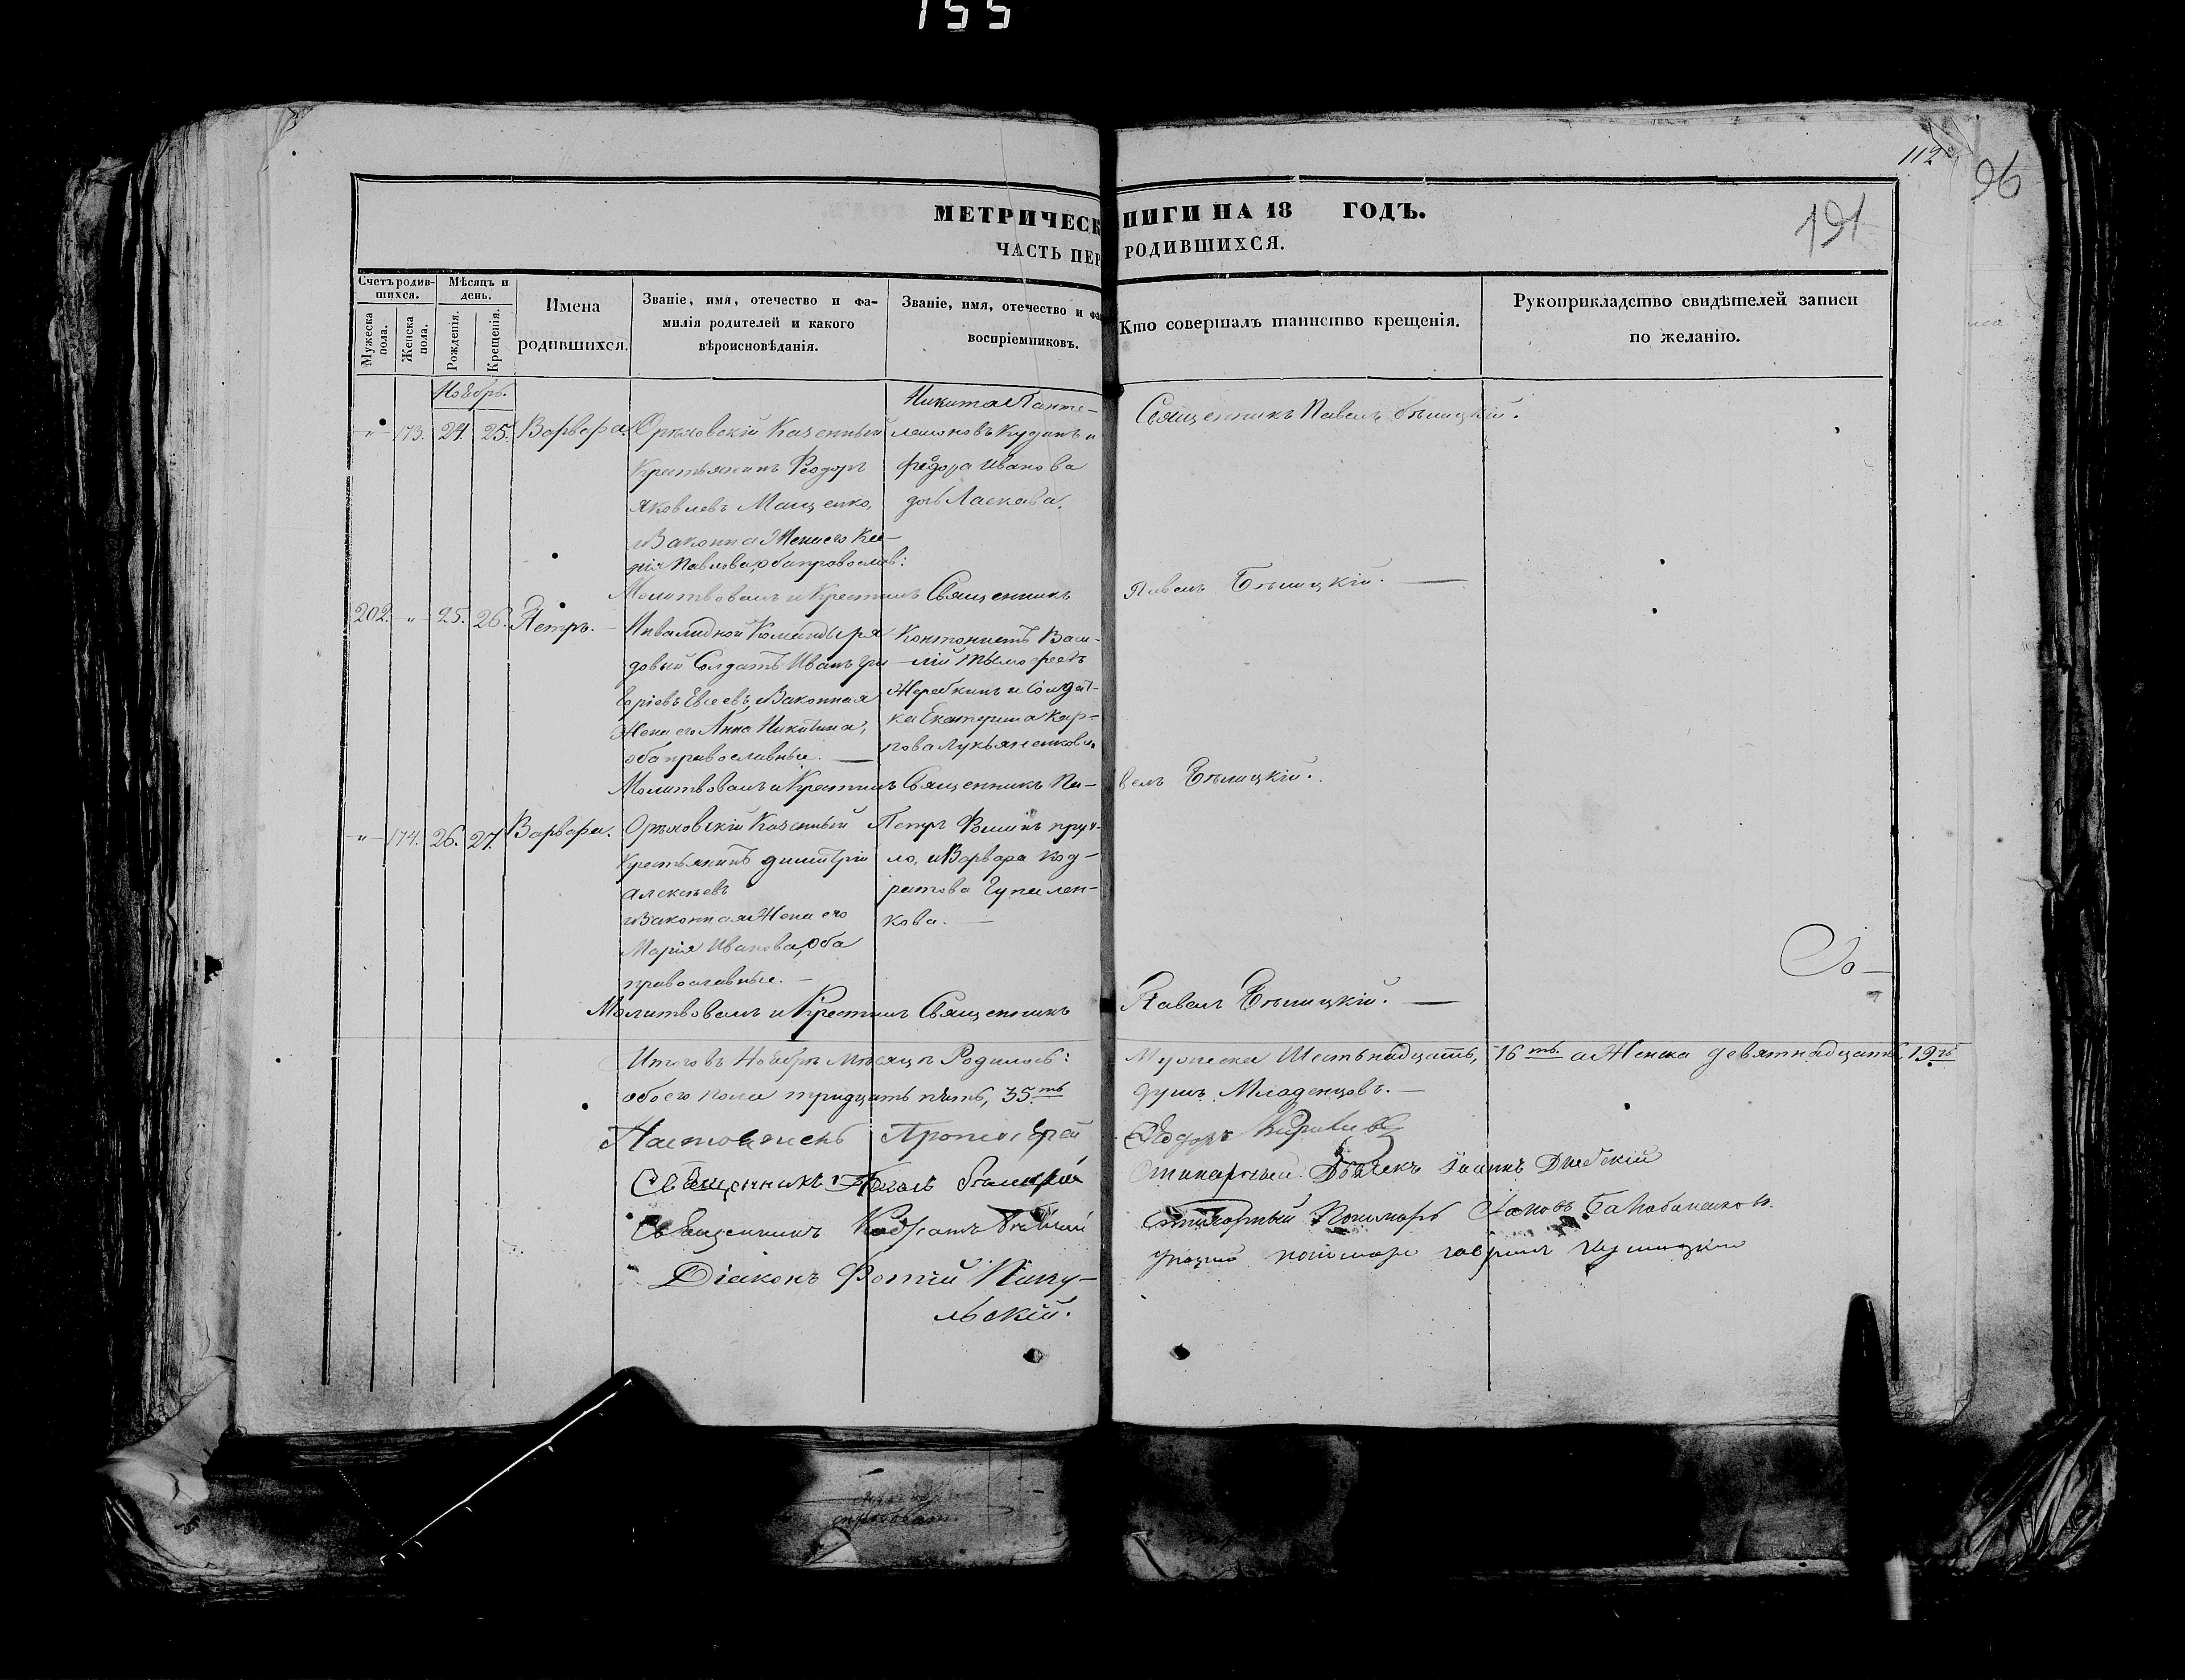 155
112
96
191
МЕТРИЧЕСК НИГИ НА 18 ГОДЪ.
ЧАСТЬ ПЕР РОДИВШИХСЯ.
Счетъ родив-
шихся.
Мужеска пола.
Женска пола.
Мѣсяцъ и
день.
Рожденія.
Крещенія.
Имена
родившихся.
Званіе, имя, отечество и фа-
милія родителей и какого
вѣроисновѣданія.
Званіе, имя, отечество и фа
воспріемниковъ.
Кто совершалъ таинство крещенія.
Рукоприкладство свидѣтелей записи
по желанію.
Ноябрь.
„ 173. 24. 25. Варвара.
Орѣховскій Казенный
Крестьянинъ Феодоръ
Яковлевъ Мащенко,
и Законна Жена его Ксе-
нія Павлова, оба православ:
Никита Панте-
леимоновъ Кудинъ и
Федора Иванова
дочь Ласкава.
Священникъ Павелъ Бѣлицкій.
Молитвовалъ и Крестилъ Священникъ Павелъ Бѣлицкій.
202. „ 25. 26. Петръ.
Инвалидной Команды ря
довый Солдатъ Иванъ Гри
горіевъ Евсеевъ, и Законная
Жена его Анна Никитина,
оба православные.
Кантонистъ Васи-
лій Тимофеевъ
Жеребкинъ и Солдат-
ка Екатерина Кар-
пова Лукьяненкова.
Молитвовалъ и Крестилъ Священникъ Па- велъ Бѣлицкій.
„ 174. 26. 27. Варвара.
Орѣховскій Казенный
Крестьянинъ Димитрій
Алексѣевъ
и Законная Жена его
Марія Иванова, оба
православные.
Петръ Фоминъ
и Варвара Код-
ратова
кова.
Молитвовалъ и Крестилъ Священникъ Павелъ Бѣлицкій.
Итого въ Ноябрѣ Мѣсяцѣ Родилось: Мужеска Шестьнадцать, 16ть а Женска девятнадцать, 19ть
обоего пола тридцать пять, 35ть душъ Младенцовъ.
Протоіерей Федоръ
Священникъ Павелъ Бѣлицкій
Священникъ Кодратъ
Діаконъ Фотій Пику-
льскій.
Стихарный Дьячекъ Іоаннъ
Стихарный Пономарь Яковъ
пономарь Гавріилъ